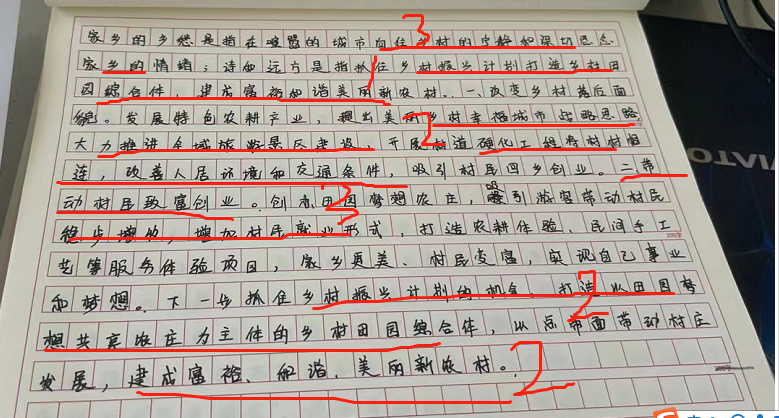 家乡的乡愁是指在喧嚣的城市向往乡村的宁静和深切思念
家乡的情绪；诗和远方是指抓住乡村振兴计划打造乡村田
园综合体，建成富裕和谐美丽新农村。一、改变乡村落后面
貌。发展特色农耕产业，提出美丽乡村幸福城市战略思路，
大力推进全域旅游景区建设，开展村道硬化工程将村村相
连，改善人居环境和交通条件，吸引村民回乡创业。二带
动村民致富创业。创有田园梦想农庄，吸引游客带动村民
稳步增收，增加村民就业形式，打造农耕体验、民间手工
艺等服务体验项目，家乡更美、村民变富，实现自己事业
和梦想。下一步抓住乡村振兴计划的机会，打造以田园梦
想共享农庄为主体的乡村田园综合体，以点带面带动村庄
发展，建成富裕、和谐、美丽新农村。
3
1
2
3
2
2
VIATO